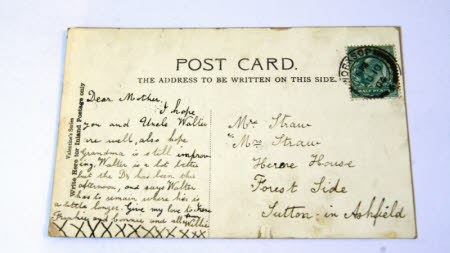 POST CARD.
THE ADDRESS TO BE WRITTEN ON THIS SIDE.
Valentine's Series
Write Here for Inland Postage only
HALF PENNY
Dear Mother,
I hope
you and Uncle Walter
are well, also hope
Grandma is still improv
ing. Walter is a lot better
but the Dr has been this
afternoon, and says Walter
has to remain where he is
a little longer. Give my love to
and Connie and all
Willie
XXXXXXXXXX
Mrs Straw
℅ Mr Straw
House
Forest Side
Sutton-in Ashfield